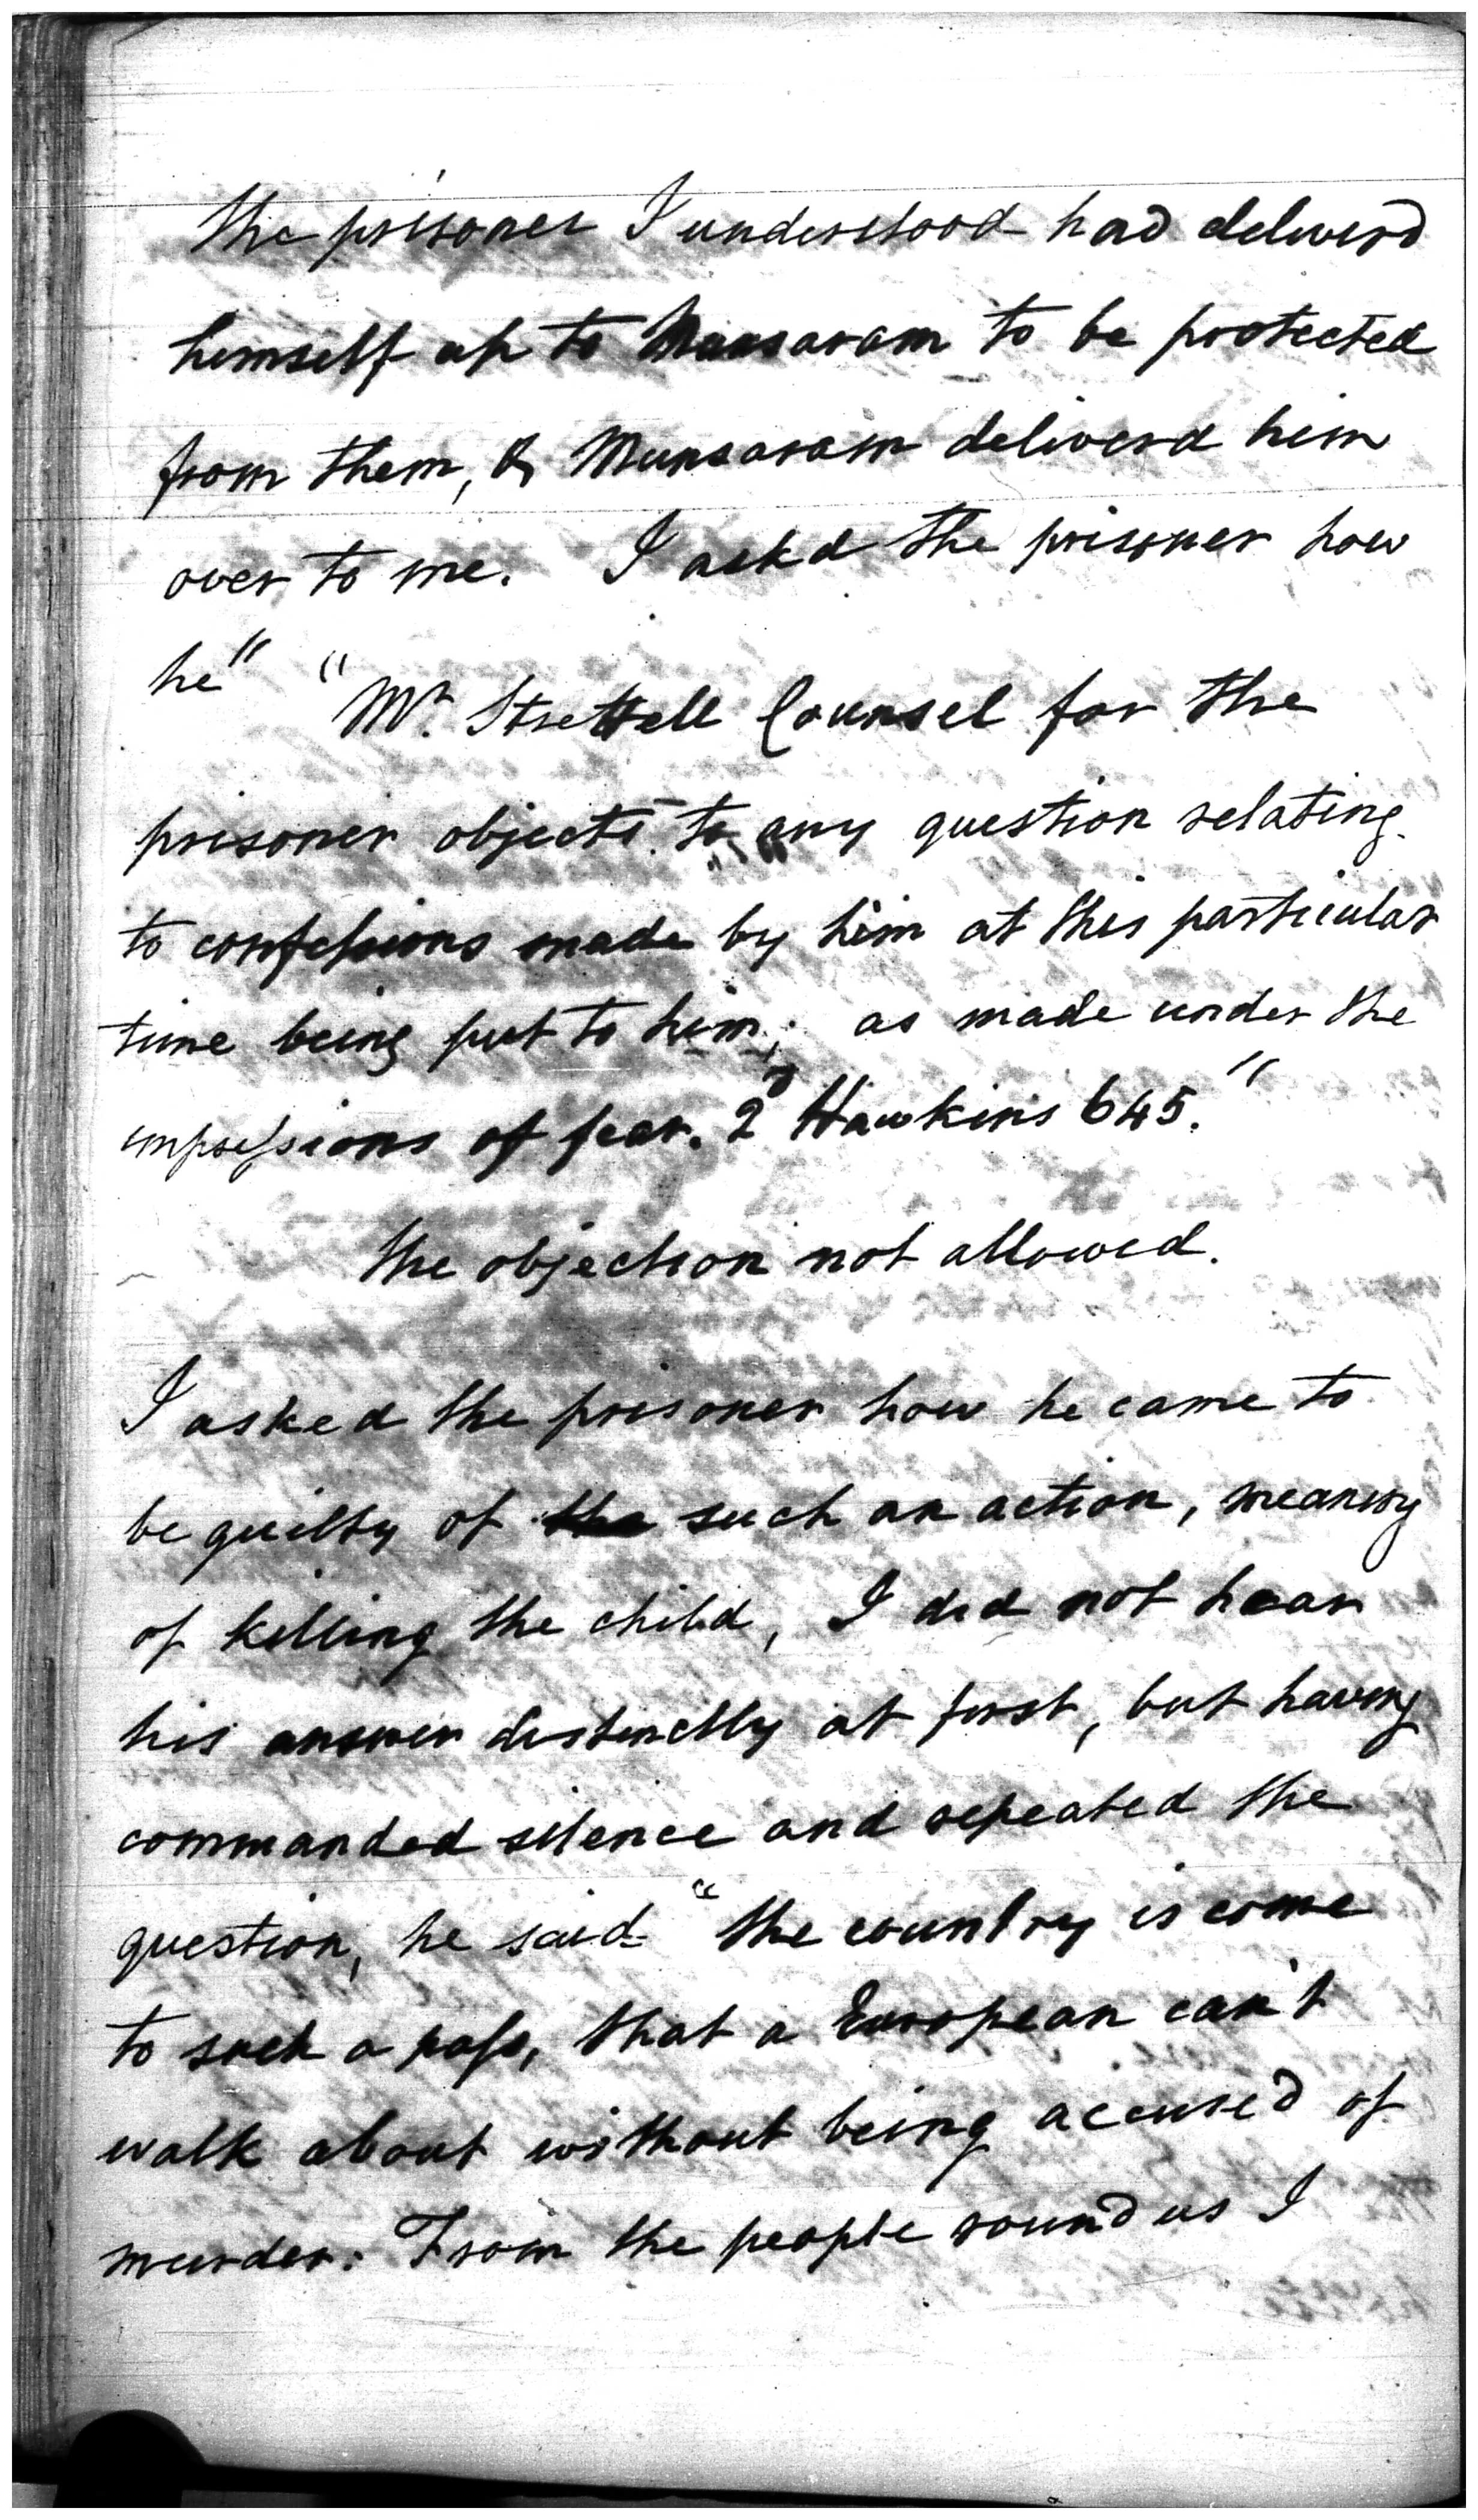 the prisoner I understood had deliverd
himself up to Munsaram to be protected
from them, & Munsaram deliverd him
over to me. I askd the prisoner how
he" "Mr. Strettell Counsel for the
prisoner objects to any question relating
to confessions made by him at this particular
time being put to him; as made under the
impressions of fear. 2d Hawkins 645."
the objection not allowed.
I asked the prisoner how he came to
be guilty of the such an action, meaning
of killing the child, I did not hear
his answer distinctly at first, but having
commanded silence and repeated the
question, he said "the country is come
to such a pass, that a European can't
walk about without being accused of
murder. From the people round us I